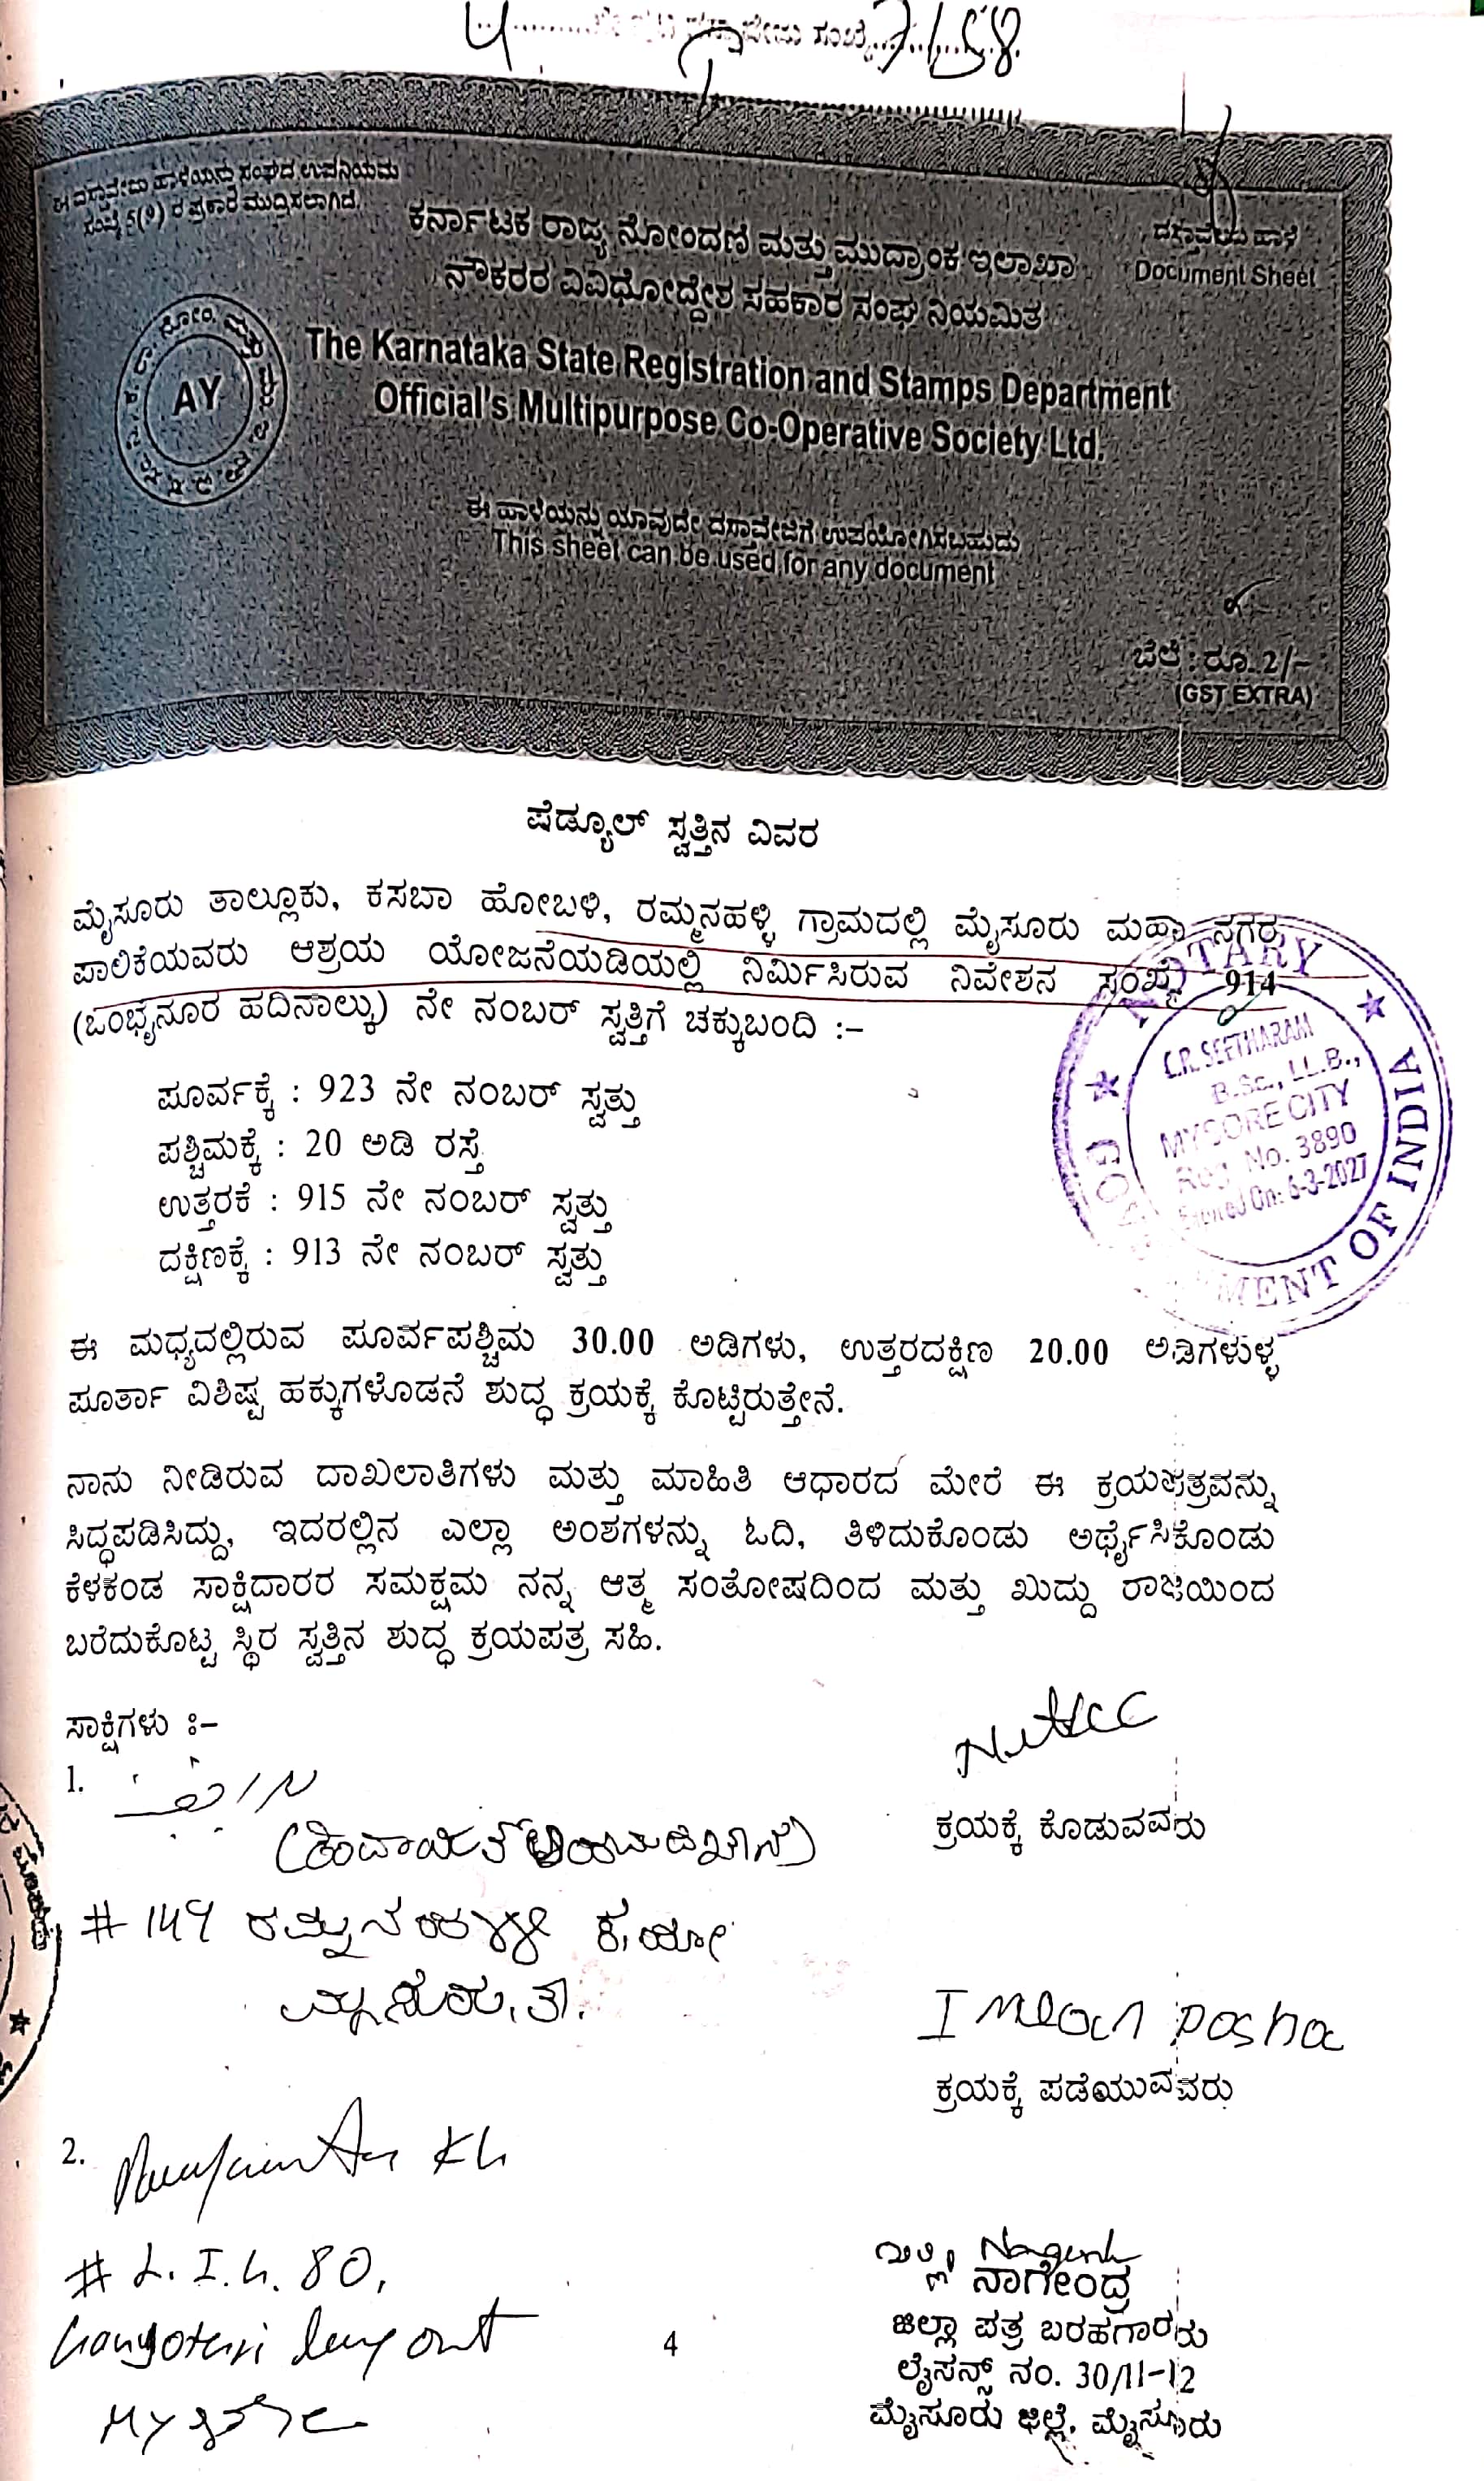 4 ದಸ್ತಾವೇಜು ಸಂಖ್ಯೆ 7158
ಈ ದಸ್ತಾವೇಜು ಹಾಳೆಯನ್ನು ಸಂಘದ ಉಪನಿಯಮ
ಸಂಖ್ಯೆ 5(೪) ರ ಪ್ರಕಾರ ಮುದ್ರಿಸಲಾಗಿದೆ.
ದಸ್ತಾವೇಜು ಹಾಳೆ
Document Sheet
ಕರ್ನಾಟಕ ರಾಜ್ಯ ನೋಂದಣಿ ಮತ್ತು ಮುದ್ರಾಂಕ ಇಲಾಖಾ
ನೌಕರರ ವಿವಿಧೋದ್ದೇಶ ಸಹಕಾರ ಸಂಘ ನಿಯಮಿತ
AY
The Karnataka State Registration and Stamps Department
Official's Multipurpose Co-Operative Society Ltd.
ಈ ಹಾಳೆಯನ್ನು ಯಾವುದೇ ದಸ್ತಾವೇಜಿಗೆ ಉಪಯೋಗಿಸಬಹುದು
This sheet can be used for any document
ಬೆಲೆ : ರೂ. 2/-
(GST EXTRA)
ಷೆಡ್ಯೂಲ್ ಸ್ವತ್ತಿನ ವಿವರ
ಮೈಸೂರು ತಾಲ್ಲೂಕು, ಕಸಬಾ ಹೋಬಳಿ, ರಮ್ಮನಹಳ್ಳಿ ಗ್ರಾಮದಲ್ಲಿ ಮೈಸೂರು ಮಹಾ ನಗರ
ಪಾಲಿಕೆಯವರು ಆಶ್ರಯ ಯೋಜನೆಯಡಿಯಲ್ಲಿ ನಿರ್ಮಿಸಿರುವ ನಿವೇಶನ ಸಂಖ್ಯೆ 914
(ಒಂಭೈನೂರ ಹದಿನಾಲ್ಕು) ನೇ ನಂಬರ್ ಸ್ವತ್ತಿಗೆ ಚಕ್ಕುಬಂದಿ :–
ಪೂರ್ವಕ್ಕೆ : 923 ನೇ ನಂಬರ್ ಸ್ವತ್ತು
ಪಶ್ಚಿಮಕ್ಕೆ : 20 ಅಡಿ ರಸ್ತೆ
ಉತ್ತರಕೆ : 915 ನೇ ನಂಬರ್ ಸ್ವತ್ತು
ದಕ್ಷಿಣಕ್ಕೆ : 913 ನೇ ನಂಬರ್ ಸ್ವತ್ತು
NOTARY
C.R. SEETHARAM
B.Sc., LL.B.,
MYSORE CITY
Reg. No. 3890
Expired On: 6-3-2027
GOVERNMENT OF INDIA
ಈ ಮಧ್ಯದಲ್ಲಿರುವ ಪೂರ್ವಪಶ್ಚಿಮ 30.00 ಅಡಿಗಳು, ಉತ್ತರದಕ್ಷಿಣ 20.00 ಅಡಿಗಳುಳ್ಳ
ಪೂರ್ತಾ ವಿಶಿಷ್ಟ ಹಕ್ಕುಗಳೊಡನೆ ಶುದ್ಧ ಕ್ರಯಕ್ಕೆ ಕೊಟ್ಟಿರುತ್ತೇನೆ.
ನಾನು ನೀಡಿರುವ ದಾಖಲಾತಿಗಳು ಮತ್ತು ಮಾಹಿತಿ ಆಧಾರದ ಮೇರೆ ಈ ಕ್ರಯಪತ್ರವನ್ನು
ಸಿದ್ಧಪಡಿಸಿದ್ದು, ಇದರಲ್ಲಿನ ಎಲ್ಲಾ ಅಂಶಗಳನ್ನು ಓದಿ, ತಿಳಿದುಕೊಂಡು ಅರ್ಥೈಸಿಕೊಂಡು
ಕೆಳಕಂಡ ಸಾಕ್ಷಿದಾರರ ಸಮಕ್ಷಮ ನನ್ನ ಆತ್ಮ ಸಂತೋಷದಿಂದ ಮತ್ತು ಖುದ್ದು ರಾಜಿಯಿಂದ
ಬರೆದುಕೊಟ್ಟ ಸ್ಥಿರ ಸ್ವತ್ತಿನ ಶುದ್ಧ ಕ್ರಯಪತ್ರ ಸಹಿ.
ಸಾಕ್ಷಿಗಳು :–
1.
ಕ್ರಯಕ್ಕೆ ಕೊಡುವವರು
# 149 ರಮ್ಮನಹಳ್ಳಿ
ಮೈಸೂರು. ತಾ.
Imran pasha
ಕ್ರಯಕ್ಕೆ ಪಡೆಯುವವರು
2. Manjunatha KH
# L.I.G. 80,
Gangotri layout
Mysore
4
ನಾಗೇಂದ್ರ
ಜಿಲ್ಲಾ ಪತ್ರ ಬರಹಗಾರರು
ಲೈಸನ್ಸ್ ನಂ. 30/11-12
ಮೈಸೂರು ಜಿಲ್ಲೆ, ಮೈಸೂರು